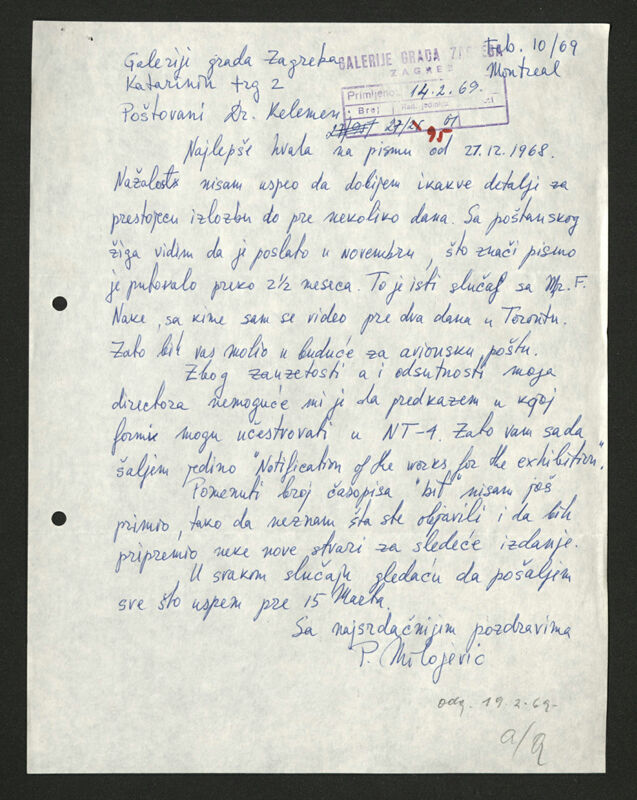 Feb. 10/69
Montreal
Galeriji grada Zagreba
Katarinin trg 2
GALERIJE GRADA ZAGREBA
ZAGREB
Primljeno: 14.2.69.
Broj
27/95 27/2x 01
95
Poštovani Dr. Kelemen,
Najlepše hvala na pismu od 27.12.1968.
Nažalost nisam uspeo da dobijem ikakve detalje za
prestojecu izlozbu do pre nekoliko dana. Sa poštanskog
žiga vidim da je poslato u novembru, što znači pismo
je putovalo preko 2½ meseca. To je isti slučaj sa Mr. F.
Nake, sa kime sam se video pre dva dana u Torontu.
Zato bih vas molio u buduće za avionsku poštu.
Zbog zauzetosti a i odsutnosti moga
directora nemoguće mi je da predkazem u kojoj
formi mogu učestvovati u NT-4. Zato vam sada
šaljem jedino "Notification of the works for the exhibition".
Pomenuti broj časopisa "bit" nisam još
primio, tako da neznam šta ste objavili i da bih
pripremio neke nove stvari za sledeće izdanje.
U svakom slučaju gledaću da pošaljem
sve što uspem pre 15 Marta.
Sa najsrdačnijim pozdravima
P. Milojević
odg. 19.2.69.
a/a